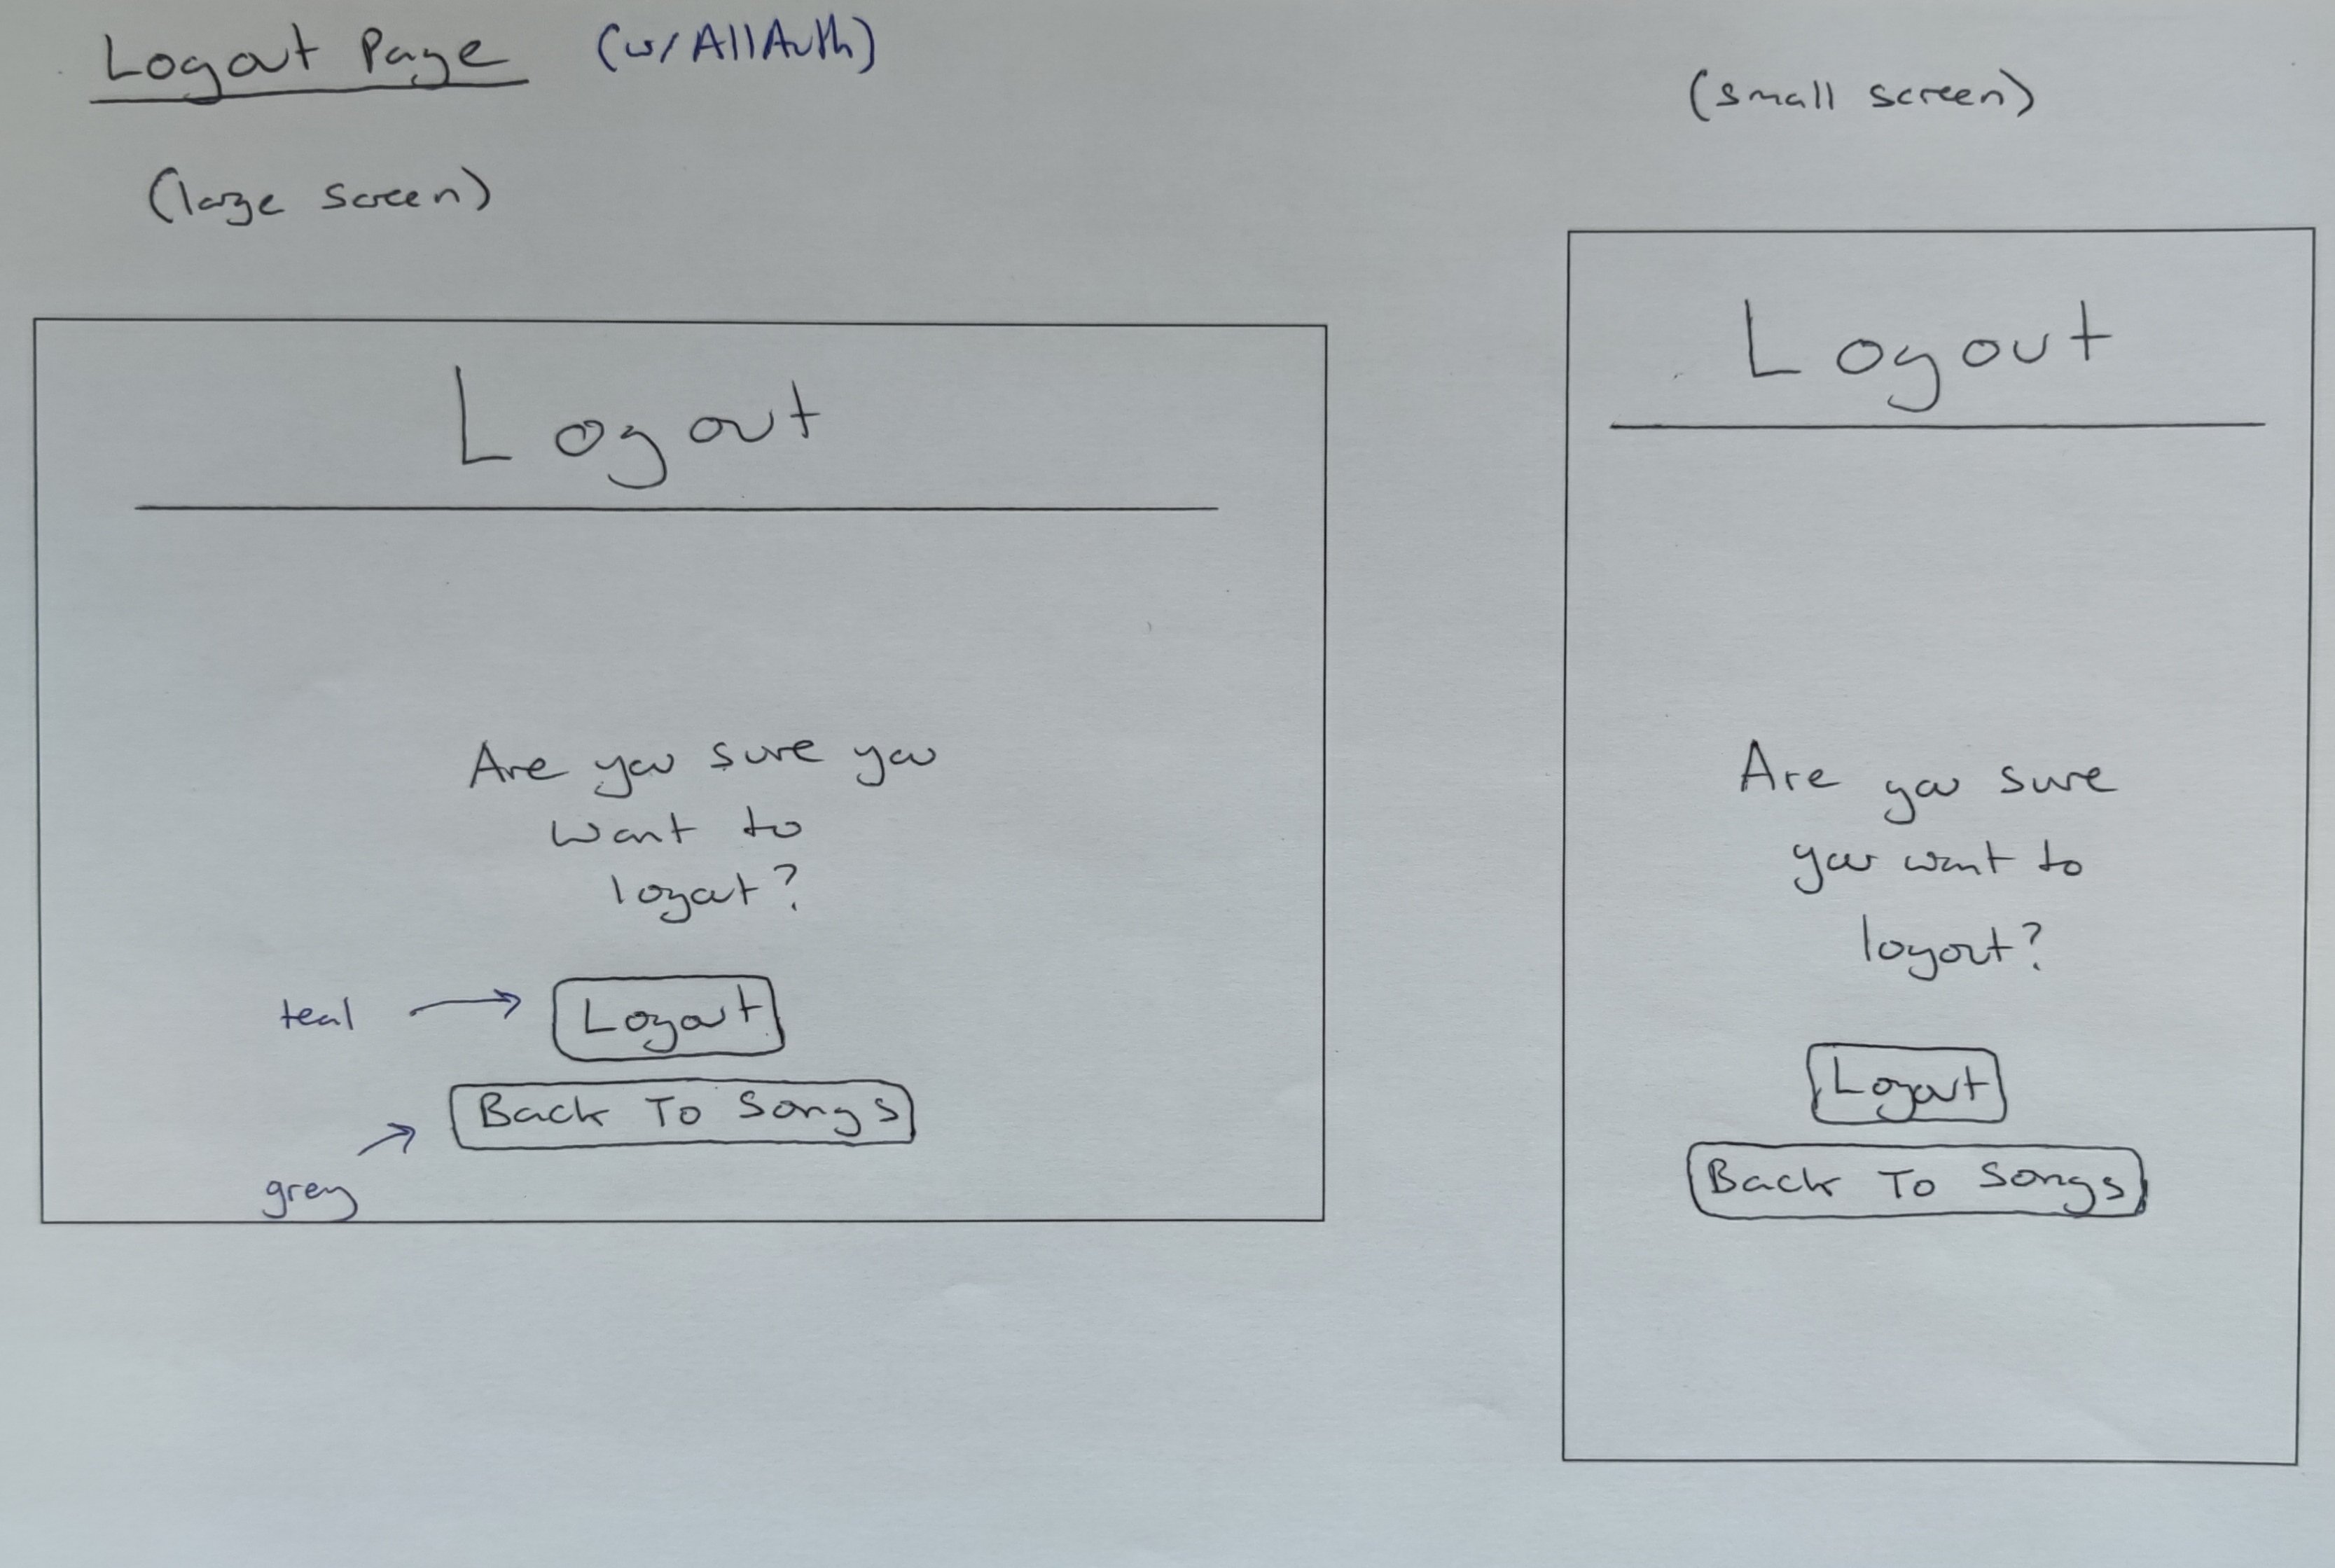 Logout Page (w/AllAuth)
(large screen)
Logout
Are you sure you
want to
logout?
teal
Logout
Back To Songs
grey
(small screen)
Logout
Are you sure
you want to
logout?
Logout
Back To Songs